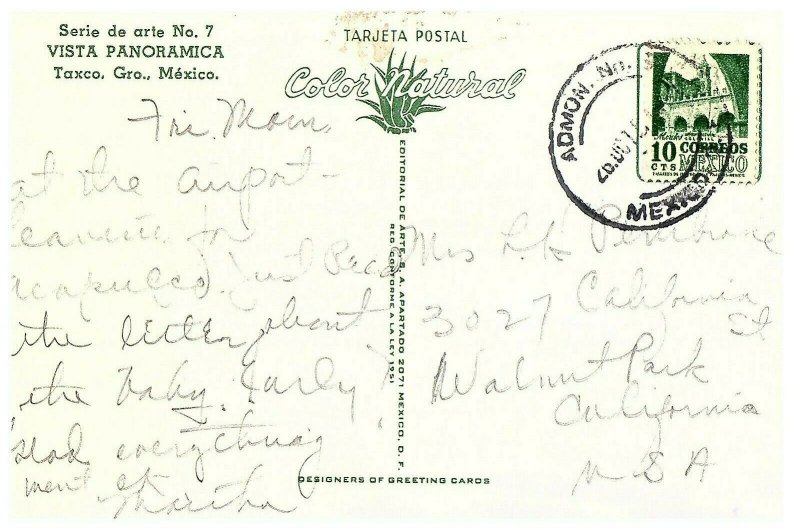 Serie de arte No. 7
VISTA PANORAMICA
Taxco, Gro., México.
TARJETA POSTAL
Color Natural
ADMON. No.
MEXICO
10 CTS CORREOS MEXICO
Fri. Morn.
at the airport -
leaving for
Acapulco. Just Recd
the letter about
the baby. Early,
glad everything
went ok
Martha
Mrs L K Pembrone
3027 California St
Walnut Park
California
U S A
EDITORIAL DE ARTE, S. A. APARTADO 2071 MEXICO, D. F.
REG. CONFORME A LA LEY 1951
DESIGNERS OF GREETING CARDS